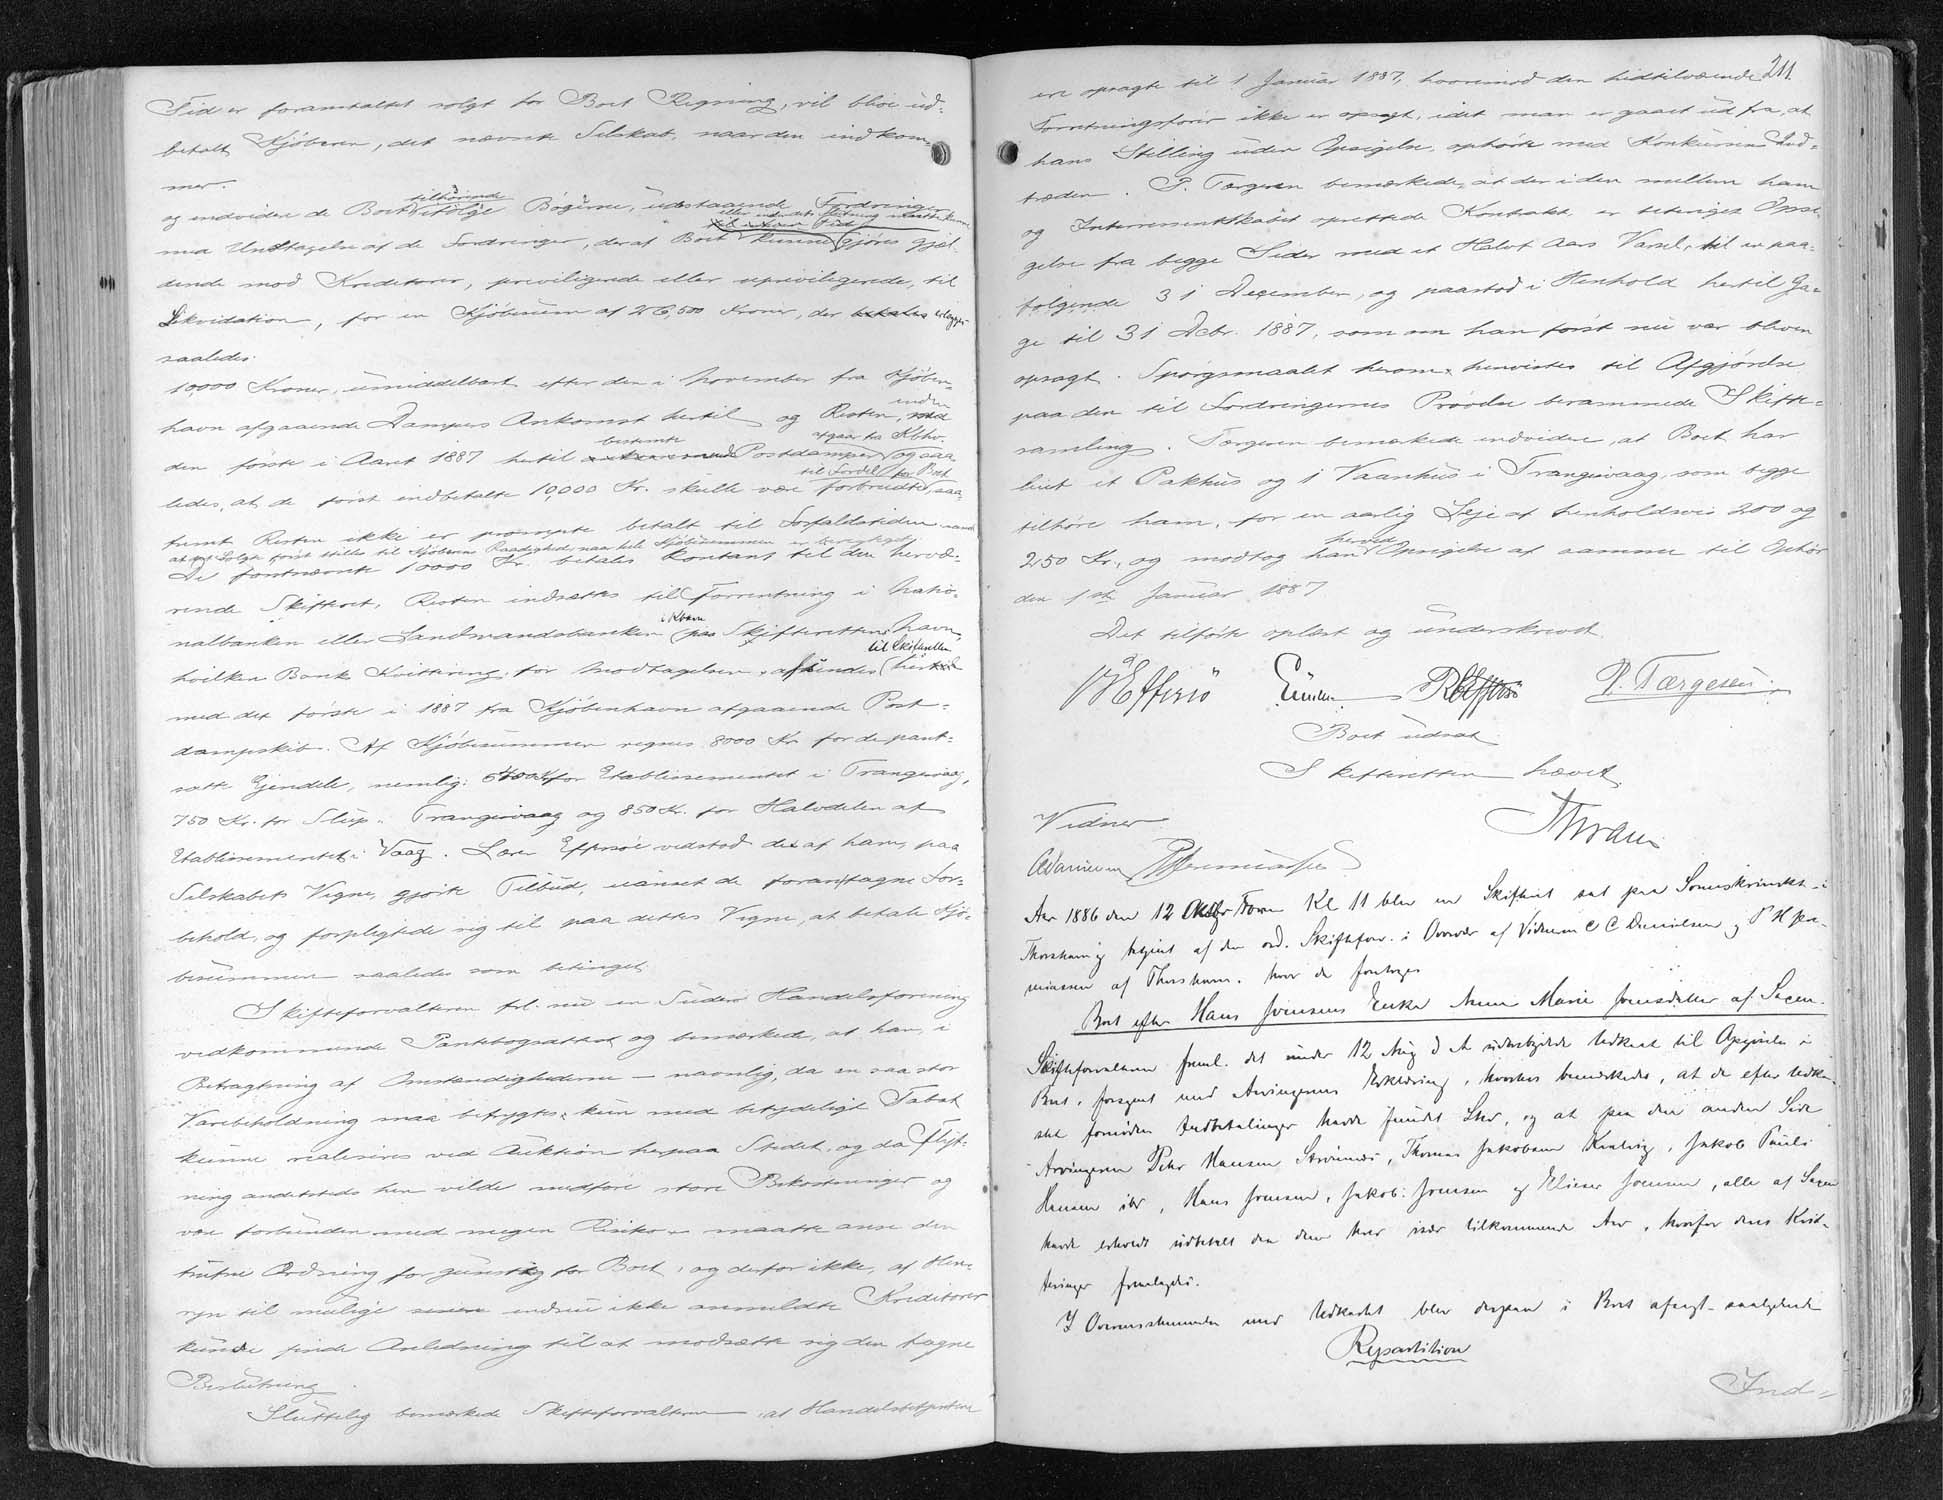 Tid er foranstaltet solgt for Boets Regning, vil blive ud-
betalt Kjøberen, det nævnte Selskab, naar den indkom-
mer.
tilhørende
og endvidere de Boet ifølge Bøgerne, udestaaende Fordringer
eller under dets Slutning maatte kunne
med Undtagelse af de Fordringer, der af Boet kunne gjøres gjæl-
dende mod Kreditorer, priviligerede eller upriviligerede, til
Likvidation, for en Kjøbesum af 26,500 Kroner, der betales erlægges
saaledes:
10,000 Kroner, umiddelbart efter den i November fra Kjøben-
havn afgaaende Dampers Ankomst hertil og Resten, inden
bestemte afgaar fra Kbhv.
den første i Aaret 1887 hertil Postdamper og saa-
til Fordel for Boet
ledes, at de først indbetalte 10,000 Kr. skulle være forbrudte, saa-
fremt Resten ikke er prompte betalt til Forfaldstiden samt
at det Solgte først stilles til Kjøberens Raadighed, naar hele Kjøbesummen er berigtiget
De førstnævnte 10000 Kr. betales kontant til den hervæ-
rende Skifteret, Resten indsættes til Forrentning i Natio-
i Kbhvn
nalbanken eller Landmandsbanken paa Skifterettens Navn,
til Skifteretten
hvilken Bank Kvittering for Modtagelsen afsendes hertil
med det første i 1887 fra Kjøbenhavn afgaaende Post-
dampskib. Af Kjøbesummen regnes 8000 Kr for de pant-
satte Ejendele, nemlig: 6400 Kr for Etablissementet i Trangisvaag,
750 Kr. for Slup "Trangisvaag" og 850 Kr. for Halvdelen af
Etablissementet i Vaag. Lærer Effersøe vedstod det af ham, paa
Selskabets Vegne, gjorte Tilbud, uanset de foran tagne For-
behold, og forpligtede sig til paa dettes Vegne, at betale Kjø-
besummen saaledes som betinget.
Skifteforvalteren frl. nu en Suderø Handelsforening
vedkommende Pantebogsattest og bemærkede, at han, i
Betragtning af Omstændighederne — navnlig, da en saa stor
Varebeholdning maa befrygtes kun med betydeligt Tabet
kunne realiseres ved Auktion herpaa Stedet, og da Flyt-
ning andetsteds hen vilde medføre store Bekostninger og
være forbunden med megen Risiko — maatte anse den
trufne Ordning for gunstig for Boet, og derfor ikke, af Hen-
syn til mulige endnu ikke anmeldte Kreditorer
kunde finde Anledning til at modsætte sig den tagne
Beslutning.
Sluttelig bemærkede Skifteforvalteren, at Handelsbetjentene
211.
ere opsagte til 1 Januar 1887, hvorimod den hidtilværende
Forretningsfører ikke er opsagt, idet man er gaaet ud fra, at
hans Stilling uden Opsigelse, ophørte med Konkursens Ind-
træden. P. Tærgesen bemærkede, at der i den mellem ham
og Interessentskabet oprettede Kontrakt, er betinget Opsi-
gelse fra begge Sider med et Halvt Aars Varsel, til en paa-
følgende 31 December, og paastod i Henhold hertil Ga-
ge til 31 Dcbr. 1887, som om han først nu var bleven
opsagt. Spørgsmaalet herom henvistes til Afgjørelse
paa den til Fordringernes Prøvelse berammede Skifte-
samling. Tærgesen bemærkede endvidere, at Boet har
leiet et Pakhus og 1 Vaanhus i Trangisvaag, som begge
tilhøre ham, for en aarlig Leje af henholdsvis 200 og
herved
250 Kr., og modtog han Opsigelse af samme til Ophør
den 1ste Januar 1887
Det tilførte oplæst og underskrevet.
Effersø P. Tærgesen.
Boet udsat
Skifteretten hævet
Vidner
Aar 1886 den 12 Oktbr Form Kl 11 blev en Skifteret sat paa Sorenskriverkt. i
Thorshavn og betjent af den ord. Skifteforv. i Overvær af Vidnerne C C Danielsen og P H Jere-
miassen af Thorshavn, hvor da foretoges
Boet efter Hans Joensens Enke Anne Marie Joensdatter af Saxen.
Skifteforvalteren freml. det under 12 Aug d A udarbejdede Udkast til Opgjørelse i
Boet, forsynet med Arvingernes Erklæring, hvorhos bemærkedes, at de efter Udka-
stet fornødne Indbetalinger havde fundet Sted, og at paa den anden Side
Arvingerne Peter Hansen Strømnæs, Thomas Jakobsen Kvalvig, Jakob Pauli
Hansen ibr, Hans Joensen, Jakob Joensen og Elieser Joensen, alle af Saxen
havde erholdt udbetalt den dem hver især tilkommende Arv, hvorfor deres Kvit-
teringer fremlagdes.
I Overensstemmelse med Udkastet blev derpaa i Boet afsagt saalydende
Repartition
Ind-